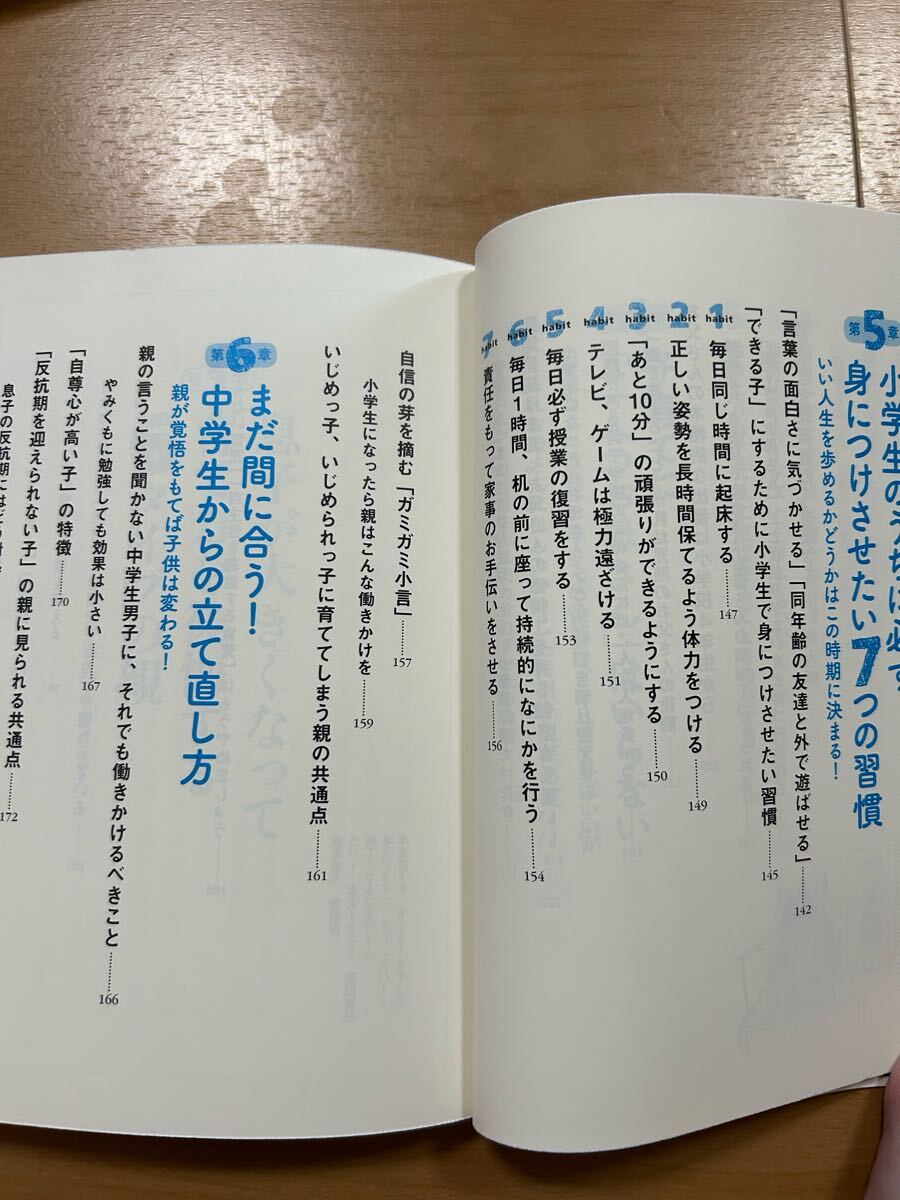 第5章
小学生のうちに必ず
身につけさせたい7つの習慣
いい人生を歩めるかどうかはこの時期に決まる！
「言葉の面白さに気づかせる」「同年齢の友達と外で遊ばせる」……142
「できる子」にするために小学生で身につけさせたい習慣……145
habit 1 毎日同じ時間に起床する……147
habit 2 正しい姿勢を長時間保てるよう体力をつける……149
habit 3 「あと10分」の頑張りができるようにする……150
habit 4 テレビ、ゲームは極力遠ざける……151
habit 5 毎日必ず授業の復習をする……153
habit 6 毎日1時間、机の前に座って持続的になにかを行う……154
habit 7 責任をもって家事のお手伝いをさせる……156
自信の芽を摘む「ガミガミ小言」……157
小学生になったら親はこんな働きかけを……159
いじめっ子、いじめられっ子に育ててしまう親の共通点……161
第6章
まだ間に合う！
中学生からの立て直し方
親が覚悟をもてば子供は変わる！
親の言うことを聞かない中学生男子に、それでも働きかけるべきこと……166
やみくもに勉強しても効果は小さい……167
「自尊心が高い子」の特徴……170
「反抗期を迎えられない子」の親に見られる共通点……172
息子の反抗期にはどう